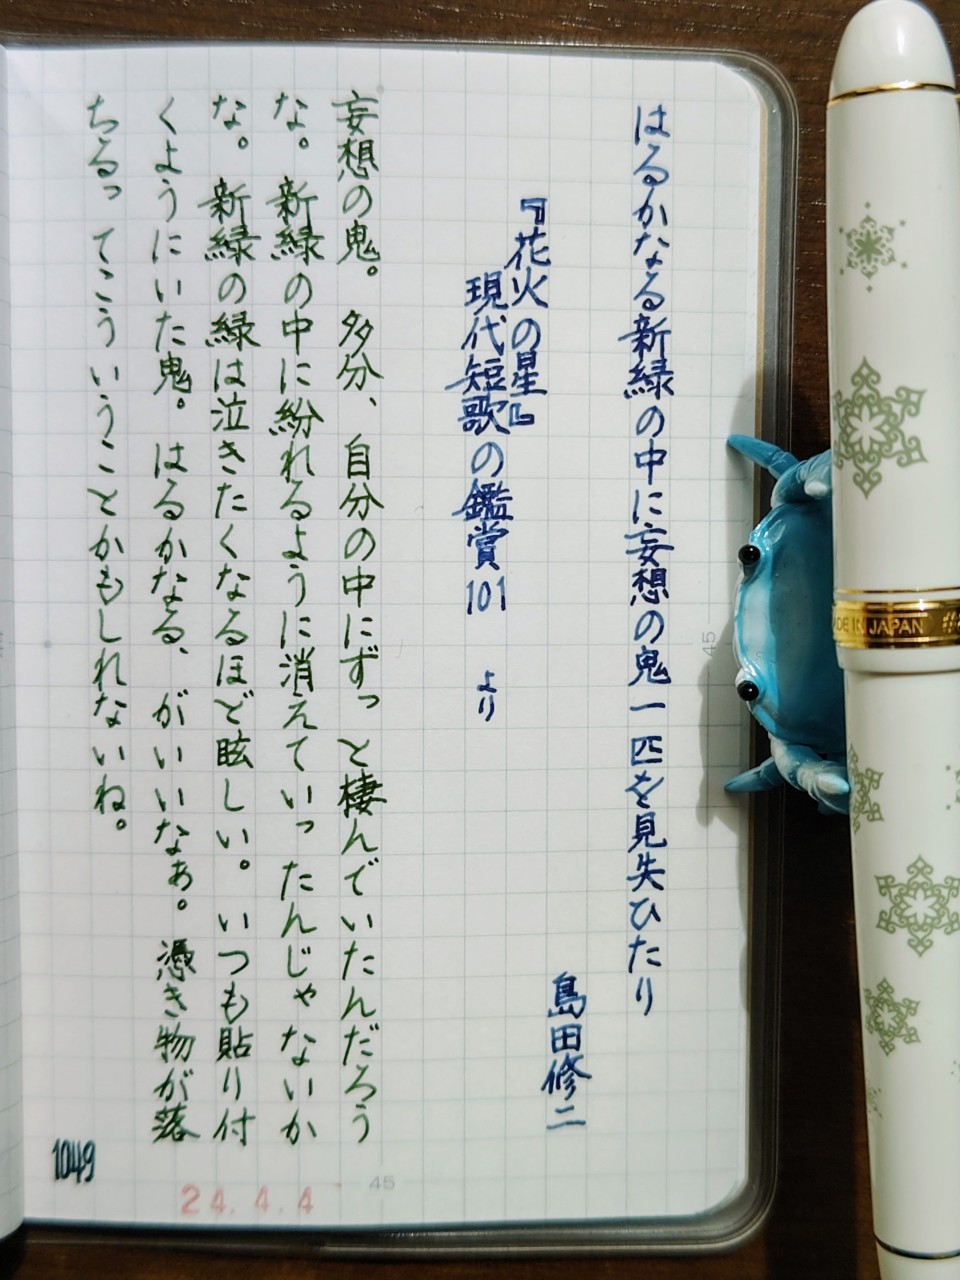 はるかなる新緑の中に妄想の鬼一匹を見失ひたり
島田修二
『花火の星』
現代短歌の鑑賞101 より
妄想の鬼。多分、自分の中にずっと棲んでいたんだろう
な。新緑の中に紛れるように消えていったんじゃないか
な。新緑の緑は泣きたくなるほど眩しい。いつも貼り付
くようにいた鬼。はるかなる、がいいなぁ。憑き物が落
ちるってこういうことかもしれないね。
1049
24.4.4
45
45
MADE IN JAPAN